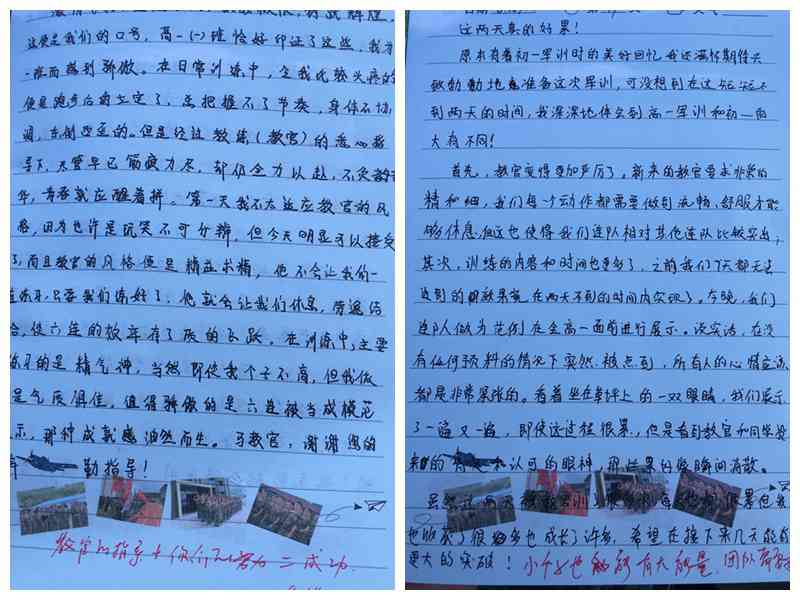 这便是我们的口号,高一(一)班恰好印证了这些,我为
一班而感到骄傲。在日常训练中,令我比较头疼的
便是跑步后的立定了,总把握不了节奏,身体不协
调,东倒西歪的。但是经过教练(教官)的悉心指
导下,尽管早已筋疲力尽,却仍全力以赴,不负韶
华,青春就应醒着拼。第一天我不太适应教官的风
格,因为也许是玩笑不可分辨,但今天明显可以接受
了,而且教官的风格便是精益求精,他不会让我们一
直练习,只要我们练好了,他就会让我们休息,劳逸结
合,使六连的效率有了质的飞跃。在训练中,主要
练习的是精气神,当然即使我个子不高,但我依
是气质俱佳,值得骄傲的是六连被当成模范
示,那种成就感油然而生。马教官,谢谢您的
勤指导!
教官的指导+你们的努力=成功.
这两天真的好累!
原本有着初一军训时的美好回忆,我还满怀期待兴
致勃勃地准备这次军训,可没想到在这短短不
到两天的时间,我深深地体会到高一军训和初一的
大有不同!
首先,教官变得更加严厉了。新来的教官要求非常的
精和细,我们每个动作都需要做到流畅、舒服才能
够休息,但这也使得我们连队相对其他连队比较突出;
其次,训练的内容和时间也更多了,之前我们7天都无法
达到的效果竟在两天不到的时间内实现了。今晚,我们
连队做为范例在全高一面前进行展示。说实话,在没
有任何预料的情况下突然被点到,所有人的心情应该
都是非常紧张的。看着坐在草坪上的一双双眼睛,我们展示
了一遍又一遍,即使这过程很累,但是看到教官和同学投
来的认可的眼神,那些累仿佛瞬间消散。
虽然这两天
也收获了很多也成长了许多,希望在接下来几天能有
更大的突破!
小个子也能有大能量,团队